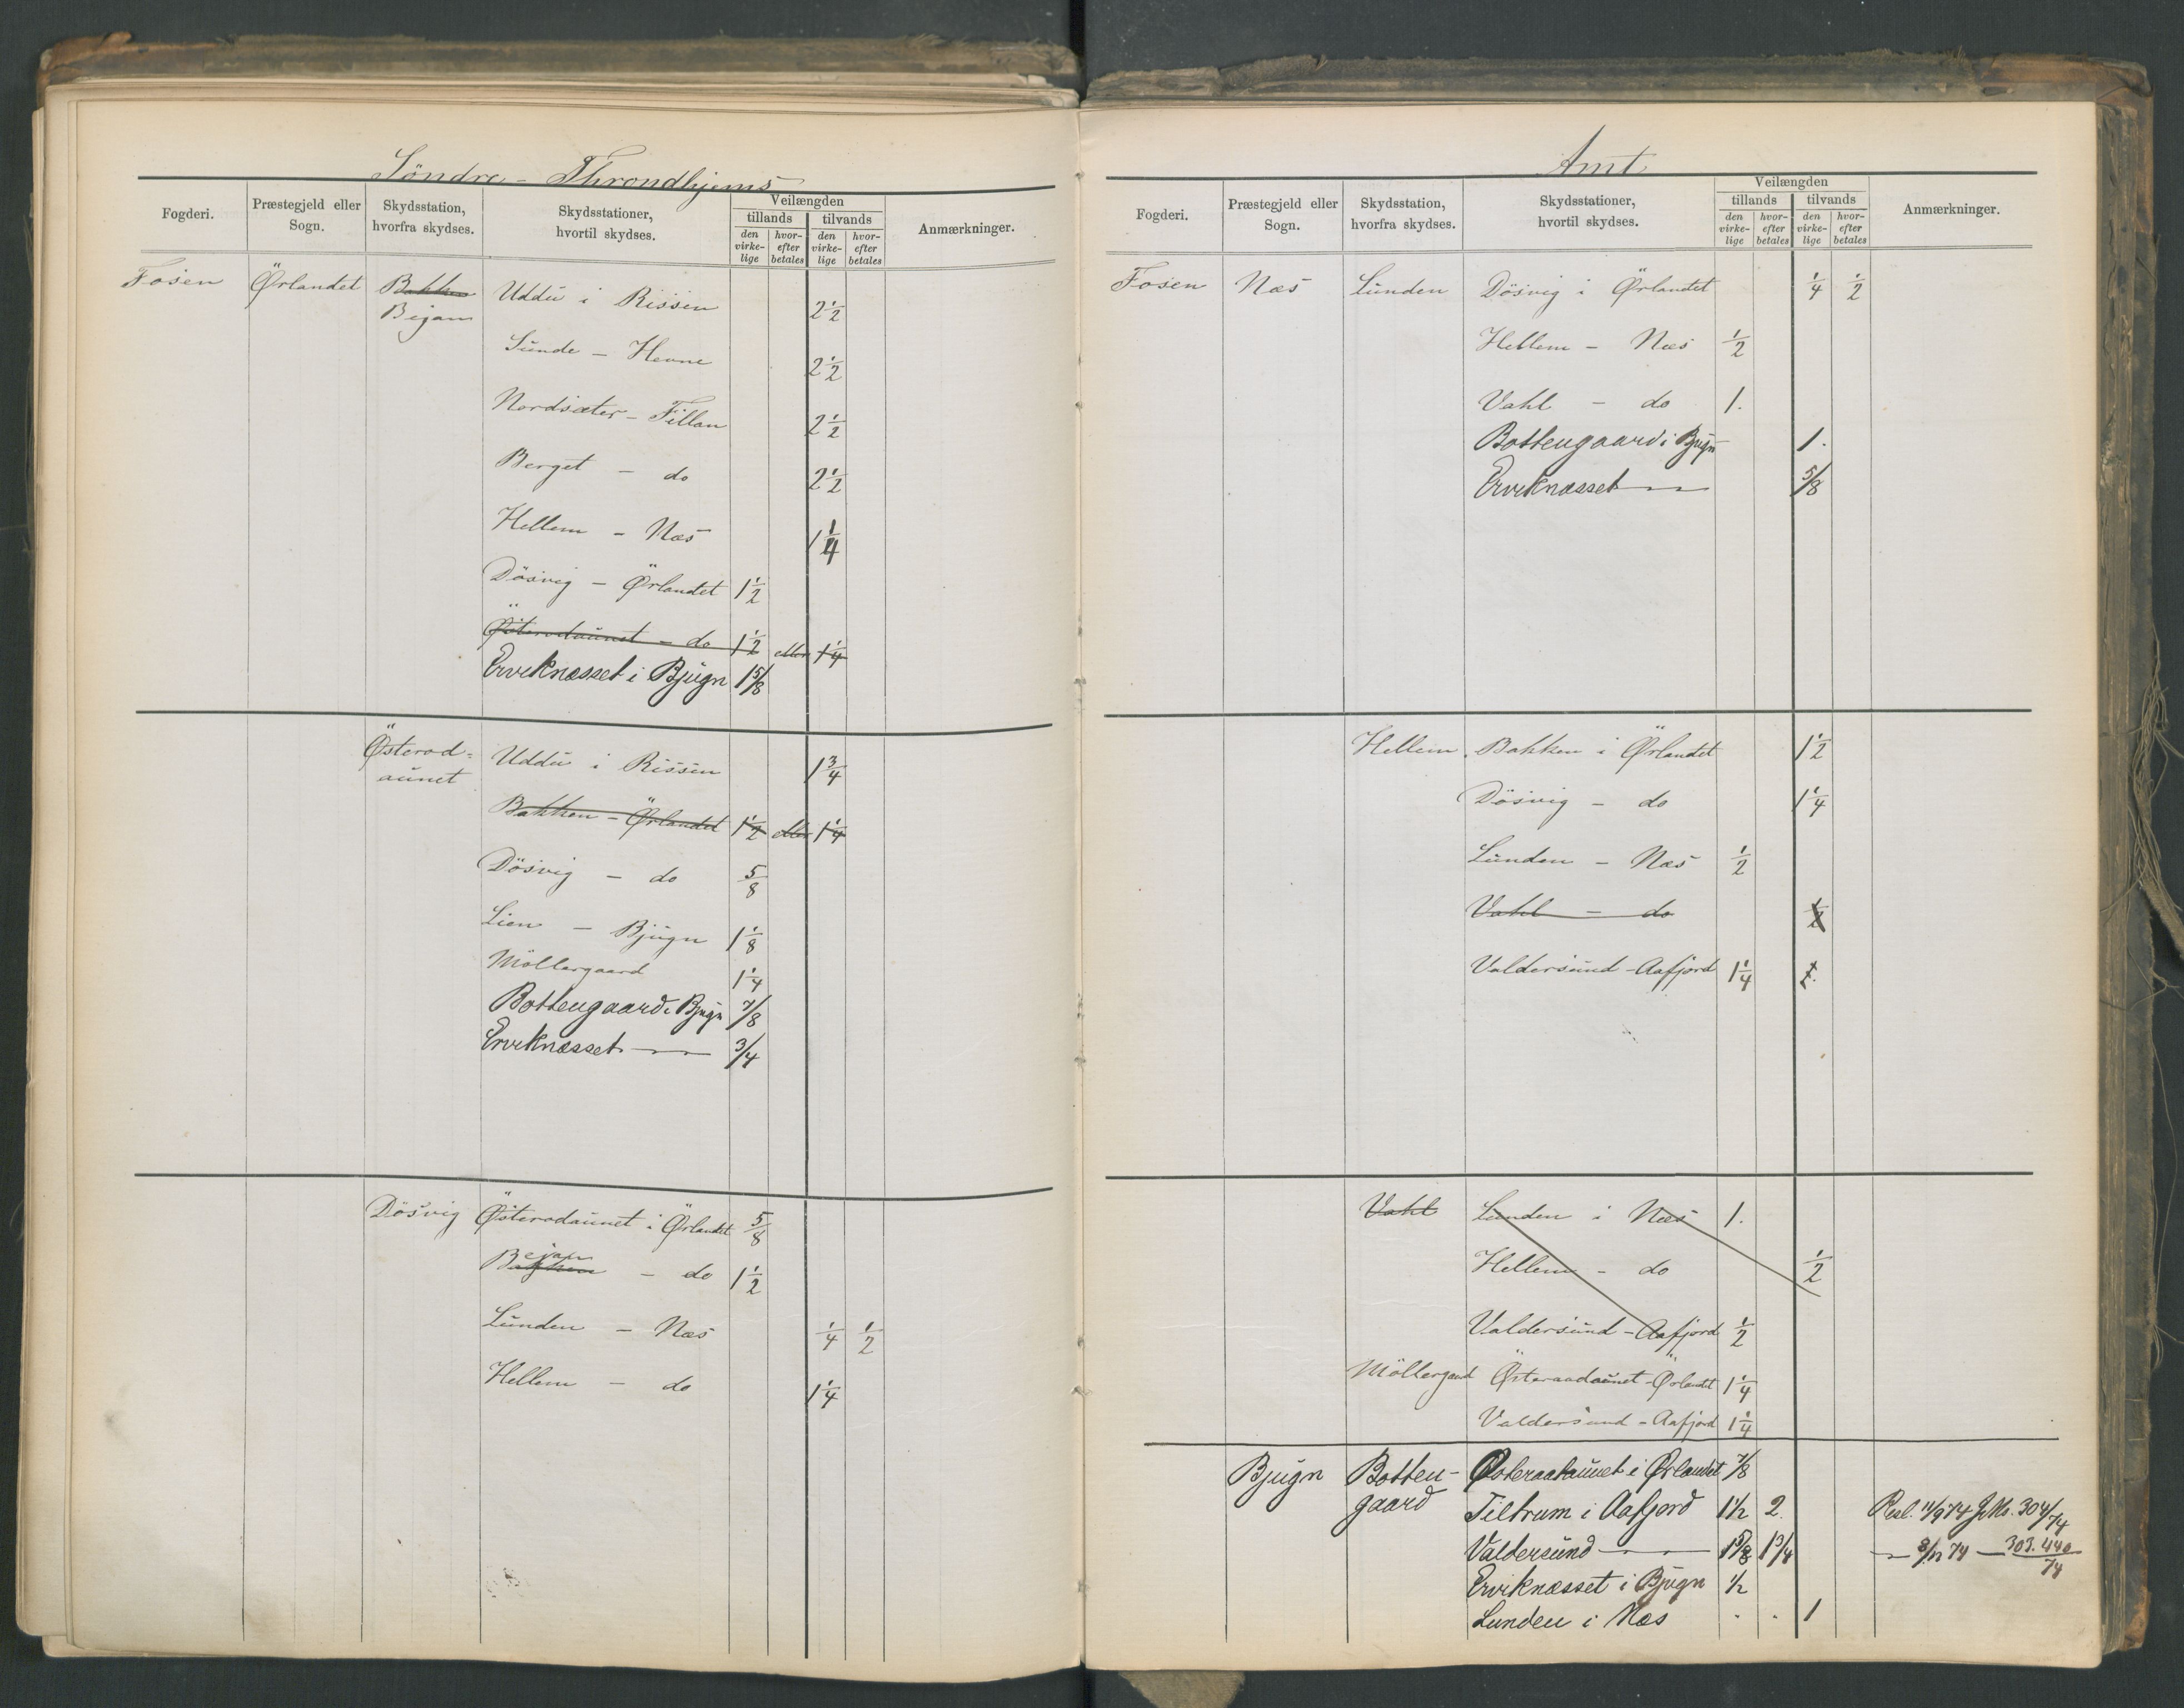 Söndre - Throndhjems
Fogderi. Præstegjeld eller Sogn. Skydsstation, hvorfra skydses. Skydsstationer, hvortil skydses. Veilængden Anmærkninger.
tillands tilvands
den virkelige hvorefter betales den virkelige hvorefter betales
Fosen Ørlandet Bakken Uddu i Rissen 2 1/2
Bejan
Sunde - Hevne 2 1/2
Nordsæter - Fillan 2 1/2
Berget - do 2 1/2
Hellem - Næs 1 1/4
Dösvig - Ørlandet 1 1/2
Østerodaunet - do 1 1/2 eller 1 1/4
Erviknæsset i Bjugn 1 5/8
Österod= Uddu i Rissen 1 3/4
aunet
Bakken - Ørlandet 1 1/2 eller 1 1/4
Dösvig - do 5/8
Lien - Bjugn 1 1/8
Möllergaard 1 1/4
Bottengaard i Bjugn 7/8
Erviknæsset -„- 3/4
Dösvig Østerodaunet i Ørlandet 5/8
Bejan
Bakken - do 1 1/2
Lunden - Næs 1/4 1/2
Hellem - do 1 1/4
Amt
Fogderi. Præstegjeld eller Sogn. Skydsstation, hvorfra skydses. Skydsstationer, hvortil skydses. Veilængden Anmærkninger.
tillands tilvands
den virkelige hvorefter betales den virkelige hvorefter betales
Fosen Næs Lunden Dösvig i Ørlandet 1/4 1/2
Hellem - Næs 1/2
Vahl - do 1.
Bottengaard i Bjugn 1.
Erviknæsset -„- 5/8
Hellem. Bakken i Ørlandet 1 1/2
Dösvig - do 1 1/4
Lunden - Næs 1/2
Vahl - do 1/2
Valdersund - Aafjord 1 1/4 1.
Vahl Lunden i Næs 1.
Hellem - do 1/2
Valdersund - Aafjord 1/2
Möllergaard Østeraadaunet - Ørlandet 1 1/4
Valdersund - Aafjord 1 1/4
Bjugn Botten- Østeraadaunet i Ørlandet 7/8
gaard Tiltrum i Aafjord 1 1/2 2. Resl. 11/9 74 J.No. 304/74
Valdersund -„- 1 5/8 1 3/4 -„- 3/12 74 - 303.440/74
Erviknæsset i Bjugn 1/2
Lunden i Næs . . 1